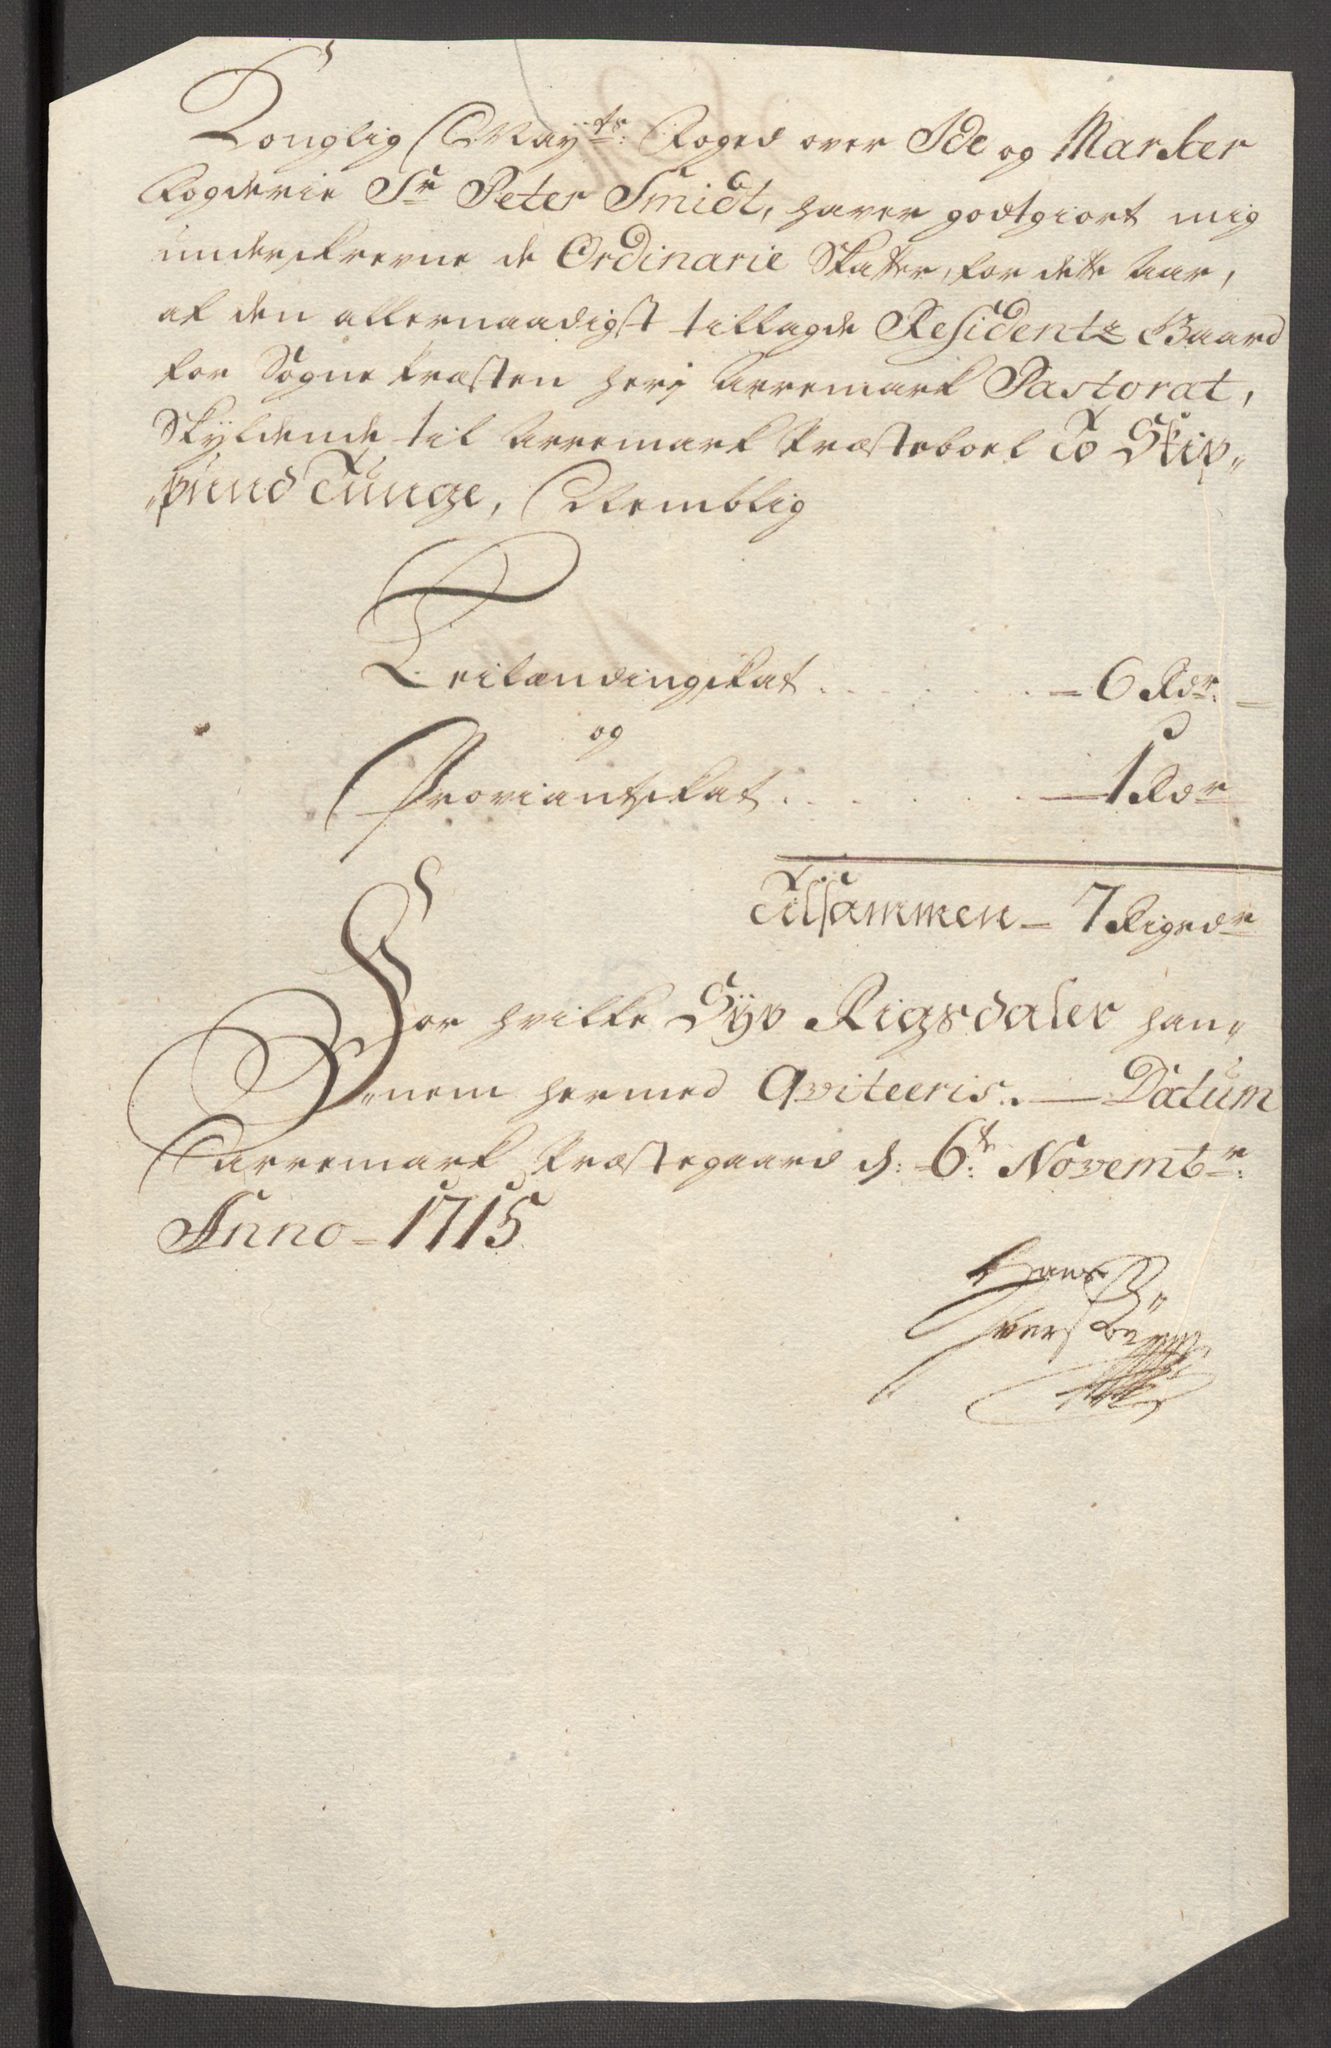 Konglig Mayts: Foged over Ide og Marker
Fogderie Sr Peter Smidt, haver godtgiort mig
underskrevne de Ordinarie Skatter, for dette Aar,
af den allernaadigst tillagde Residentz Gaard
for Sogne Præsten her i Arremark Pastorat,
Skyldende til Arremark Præsteboel To Skip„
„pund Tunge, Nemblig
Leilændingskat . . . . . . — 6 Rdr. —
og
Proviantskat . . . . . . — 1 Rdr
Tilsammen — 7 Rigsdr
For hvilke Syv Rigsdaler han„
„nem hermed Qviteeris. — Datum
Arremark Præstegaard d: 6t: Novembr:
Anno - 1715
Hans